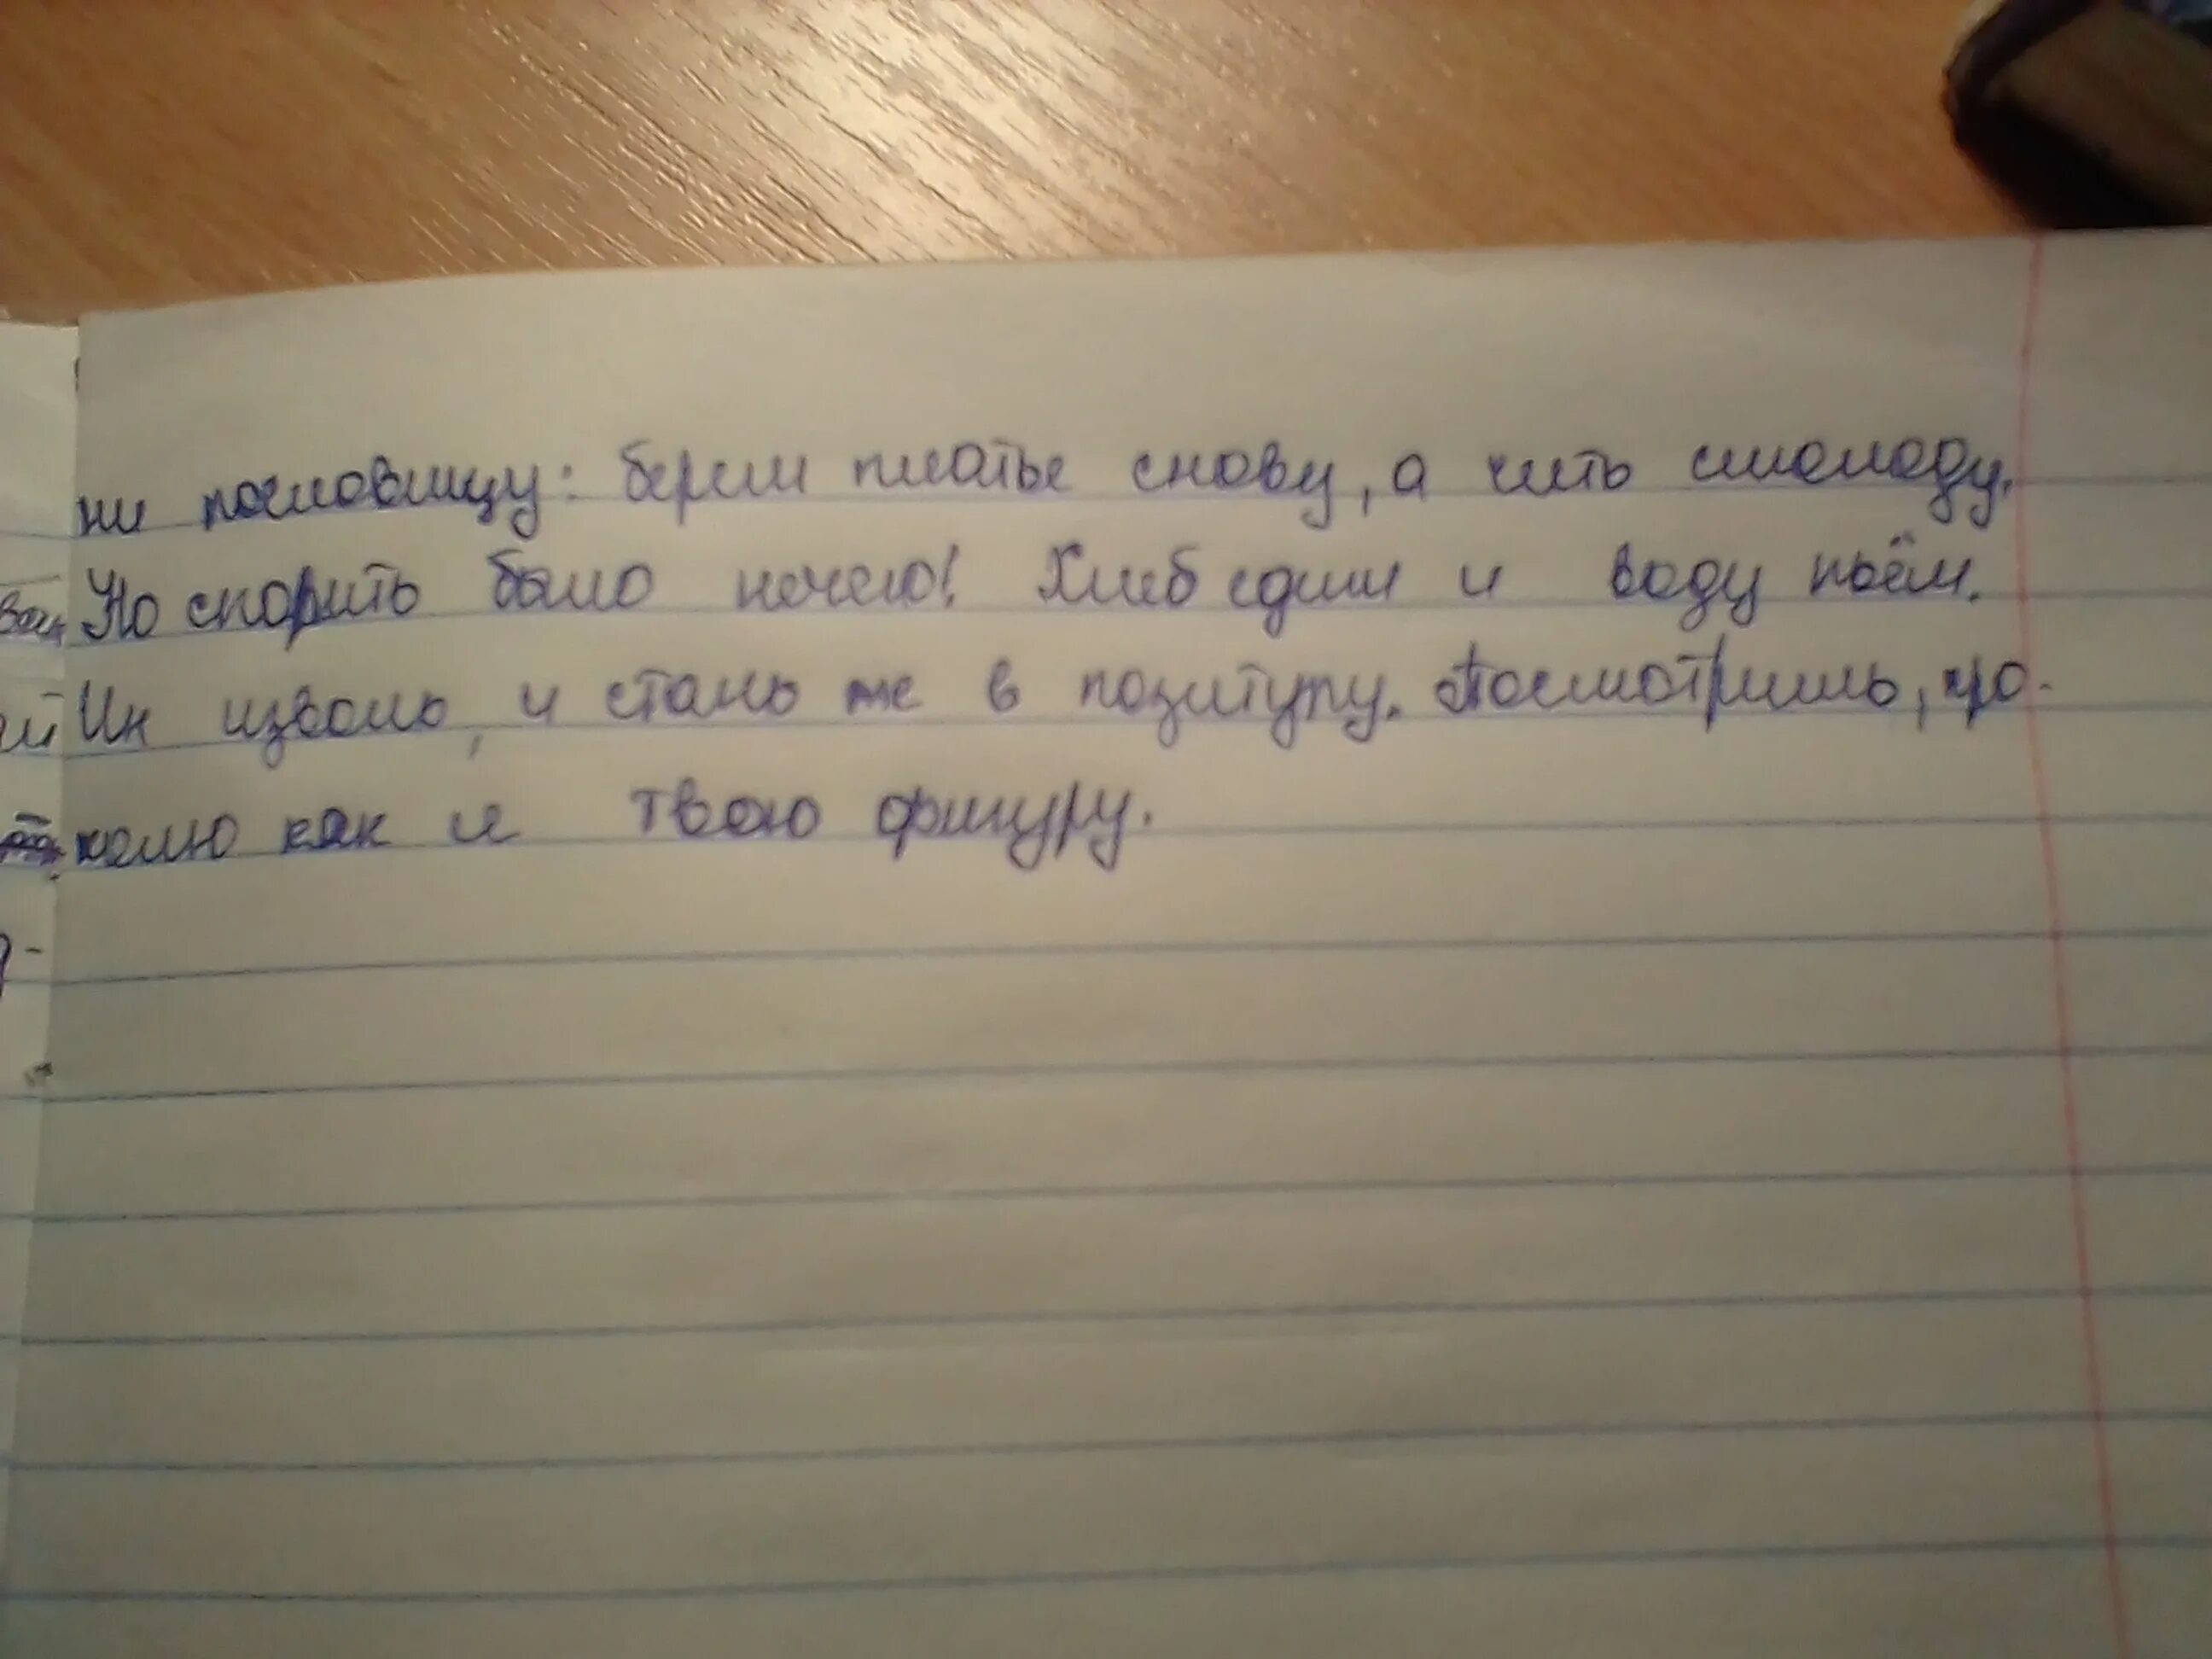 ни пословицу: береги платье снову, а честь смолоду.
Но спорить было нечего! Хлеб едим и воду пьём.
Ин изволь, и стань же в позитуру. Посмотришь, про-
колю как и твою фигуру.